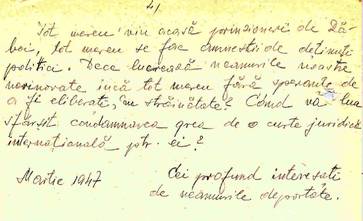 4,
Tot mereu vin acasă prizonieri de Ză-
boi, tot mereu se fac amnestii de deținuți
politici. Dece lucrează neamurile noastre
nevinovate încă tot mereu fără speranțe de
a fi eliberate, în străinătate? Când va lua
sfârșit condamnarea grea de o curte juridică
internațională ptr. ei?
Martie 1947
Cei profund interesați
de neamurile deportate.